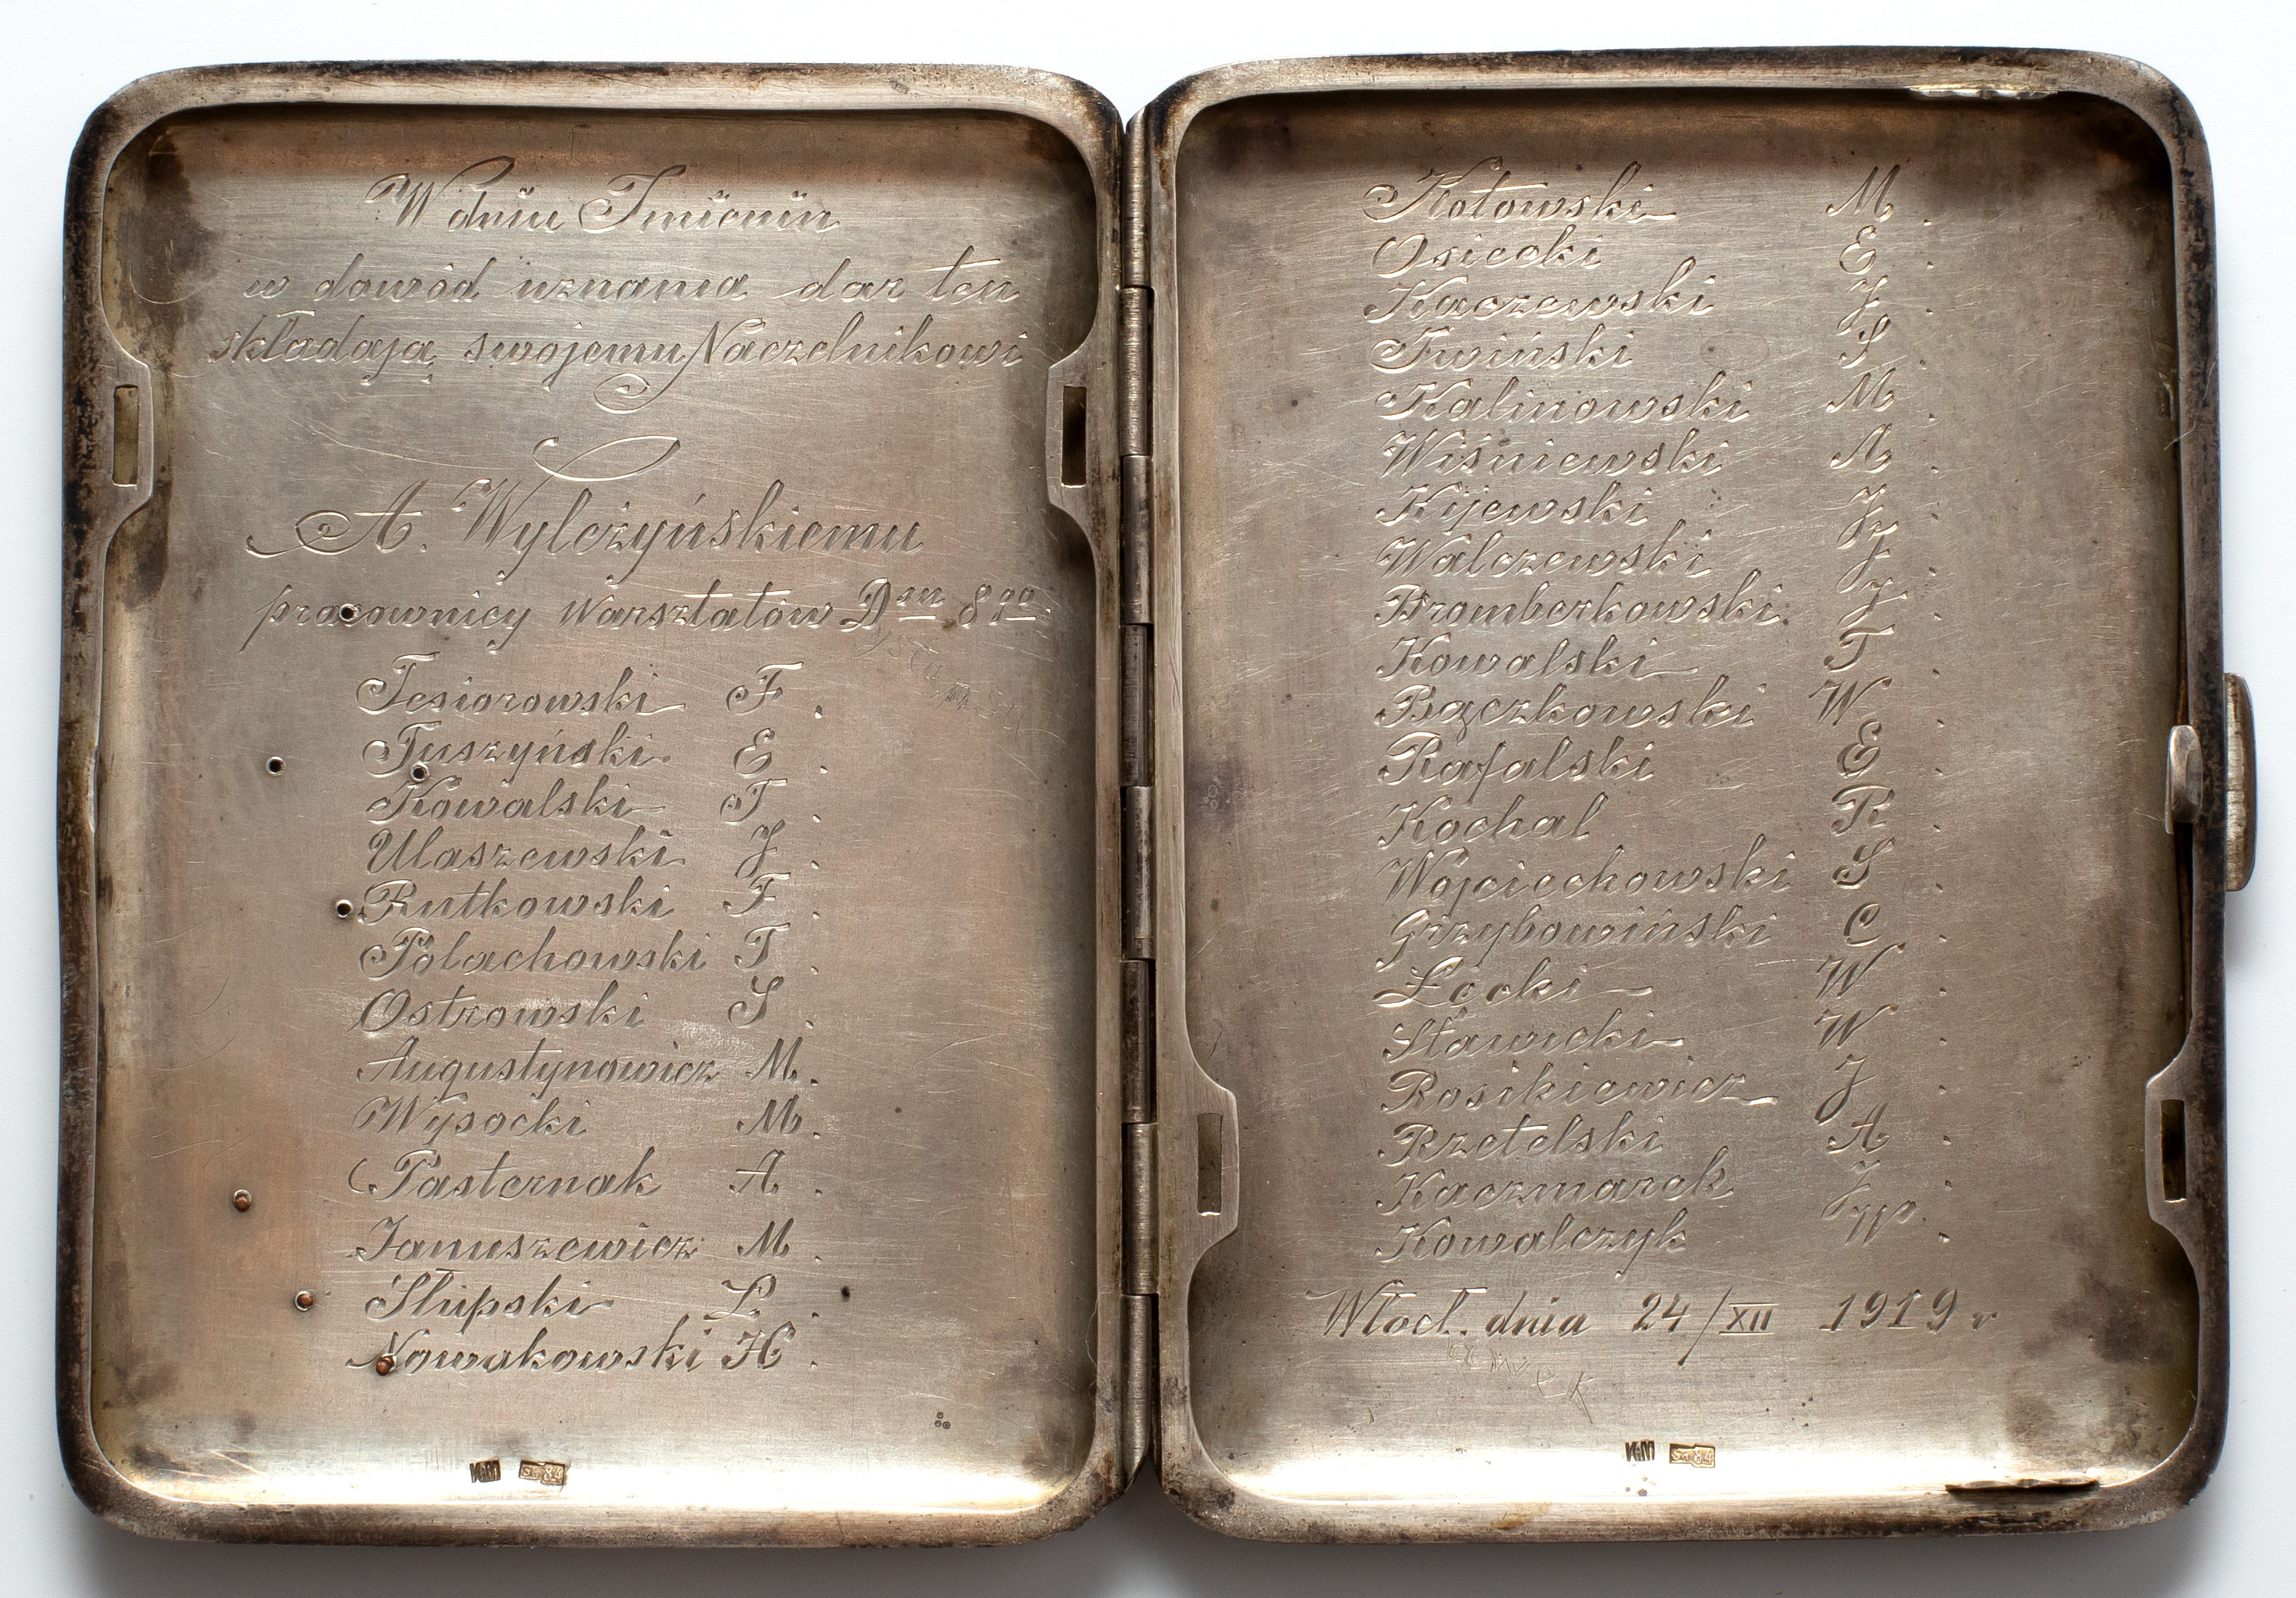 W dniu Imienin
w dowód uznania dar ten
składają swojemu Naczelnikowi
A. Wylczyńskiemu
pracownicy Warsztatów D 8go
Jesiorowski F.
Tuszyński E.
Kowalski T.
Ulaszewski J.
Rutkowski F.
Polachowski T.
Ostrowski S.
Augustynowicz M.
Wysocki M.
Pasternak A.
Januszewicz M.
Słupski L.
Nowakowski H.
KM 84
Kotowski M.
Osiecki E.
Kaczewski J.
Iwiński S.
Kalinowski M.
Wiśniewski A.
Kijewski J.
Walczewski J.
Bromberkowski J.
Kowalski T.
Bączkowski W.
Rafalski E.
Kochal R.
Wojciechowski S.
Grzybowiński C.
Łącki W.
Sławicki W.
Rosikiewicz J.
Rzetelski A.
Kaczmarek J.
Kowalczyk W.
Włocł. dnia 24/XII 1919 r
KM 84